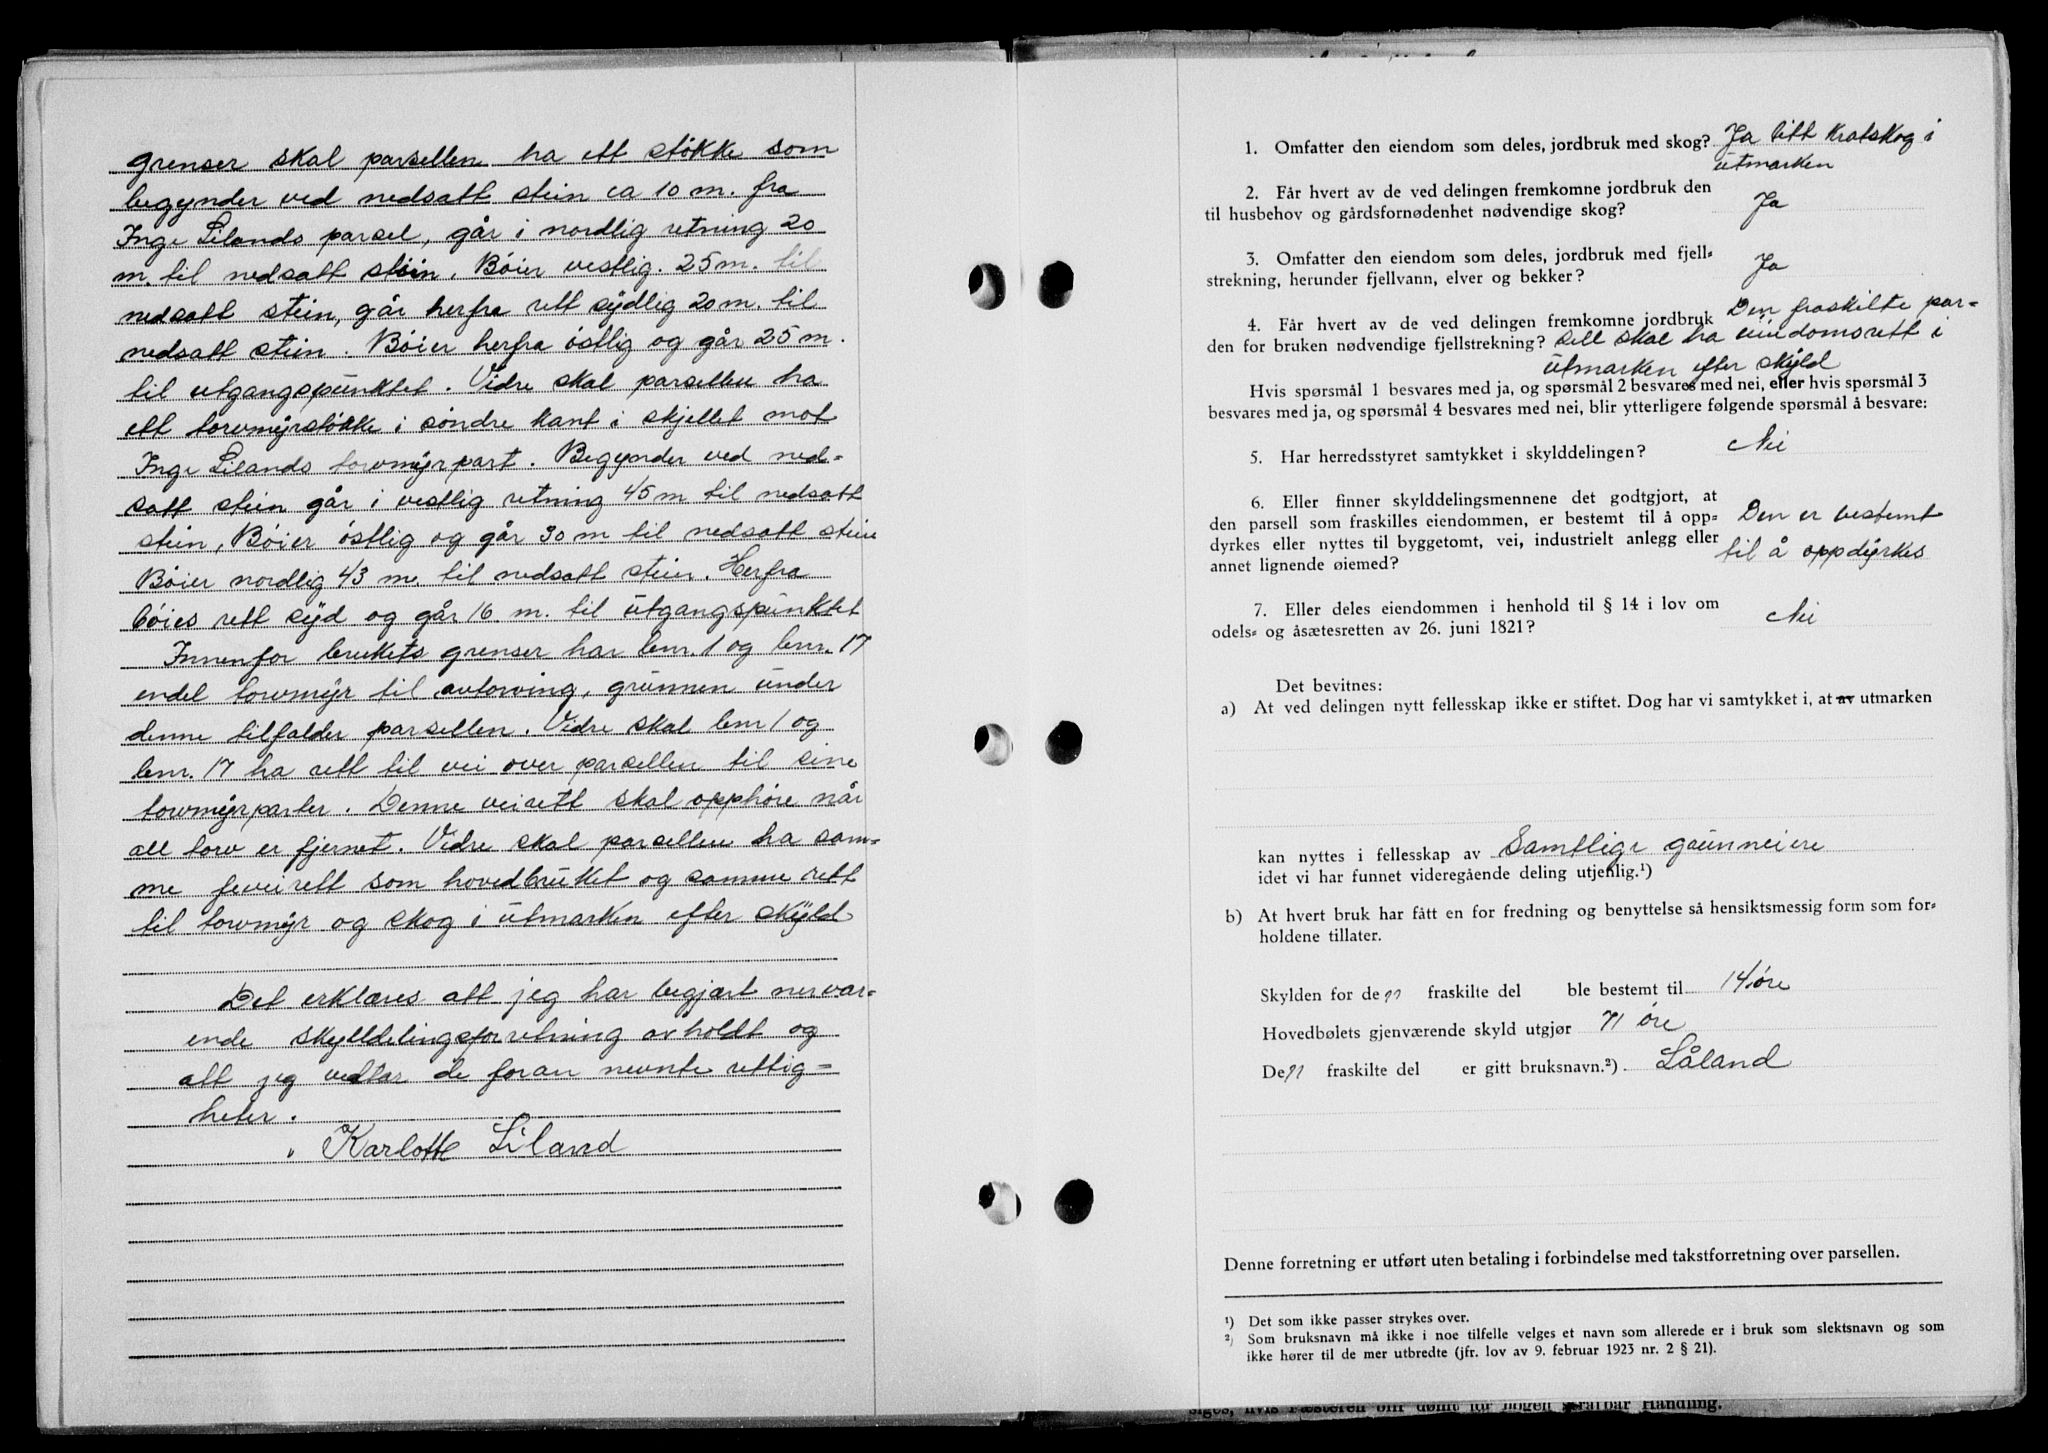 grenser skal parsellen ha ett støkke som
begynder ved nedsatt stein ca 10 m. fra
Inge Lilands parsel, går i nordlig retning 20
m. til nedsatt stein. Bøier vestlig. 25 m. til
nedsatt stein, går herfra rett sydlig 20 m. til
nedsatt stein. Bøier herfra østlig og går 25 m.
til utgangspunktet. Vidre skal parsellen ha
ett torvmyrstøkke i søndre kant i skjellet mot
Inge Lilands torvmyrpart. Begynder ved ned-
satt stein går i vestlig retning 45 m til nedsatt
stein, Bøier østlig og går 30 m til nedsatt stein
Bøier nordlig 43 m. til nedsatt stein. Herfra
bøies rett syd og går 16 m. til utgangspunktet
Innenfor brukets grenser har bnr. 1 og bnr. 17
endel torvmyr til avtorving, grunnen under
denne tilfalder parsellen. Vidre skal bnr 1 og
bnr. 17 ha rett til vei over parsellen til sine
torvmyrparter. Denne veirett skal opphøre når
all torv er fjernet. Vidre skal parsellen ha sam-
me feveirett som hovedbruket og samme rett
til torvmyr og skog i utmarken efter skyld
Det erklæres att jeg har begjært nervær-
ende skylldelingsforretning avholdt og
att jeg vedtar de foran nevnte rettig-
heter.
Karlotte Liland
1. Omfatter den eiendom som deles, jordbruk med skog? Ja litt kratskog i
utmarken
2. Får hvert av de ved delingen fremkomne jordbruk den
til husbehov og gårdsfornødenhet nødvendige skog? Ja
3. Omfatter den eiendom som deles, jordbruk med fjell-
strekning, herunder fjellvann, elver og bekker? Ja
4. Får hvert av de ved delingen fremkomne jordbruk Den fraskilte par-
den for bruken nødvendige fjellstrekning? sell skal ha eiendomsrett i
utmarken efter skyld
Hvis spørsmål 1 besvares med ja, og spørsmål 2 besvares med nei, eller hvis spørsmål 3
besvares med ja, og spørsmål 4 besvares med nei, blir ytterligere følgende spørsmål å besvare:
5. Har herredsstyret samtykket i skylddelingen? Nei
6. Eller finner skylddelingsmennene det godtgjort, at
den parsell som fraskilles eiendommen, er bestemt til å opp-
dyrkes eller nyttes til byggetomt, vei, industrielt anlegg eller
annet lignende øiemed? Den er bestemt
til å oppdyrkes
7. Eller deles eiendommen i henhold til § 14 i lov om
odels- og åsætesretten av 26. juni 1821? Nei
Det bevitnes:
a) At ved delingen nytt fellesskap ikke er stiftet. Dog har vi samtykket i, at av utmarken
kan nyttes i fellesskap av Samtlige grunneiere
idet vi har funnet videregående deling utjenlig.¹)
b) At hvert bruk har fått en for fredning og benyttelse så hensiktsmessig form som for-
holdene tillater.
Skylden for den fraskilte del ble bestemt til 14 øre
Hovedbølets gjenværende skyld utgjør 71 øre
Den fraskilte del er gitt bruksnavn.²) Låland
Denne forretning er utført uten betaling i forbindelse med takstforretning over parsellen.
¹) Det som ikke passer strykes over.
²) Som bruksnavn må ikke i noe tilfelle velges et navn som allerede er i bruk som slektsnavn og som
ikke hører til de mer utbredte (jfr. lov av 9. februar 1923 nr. 2 § 21).